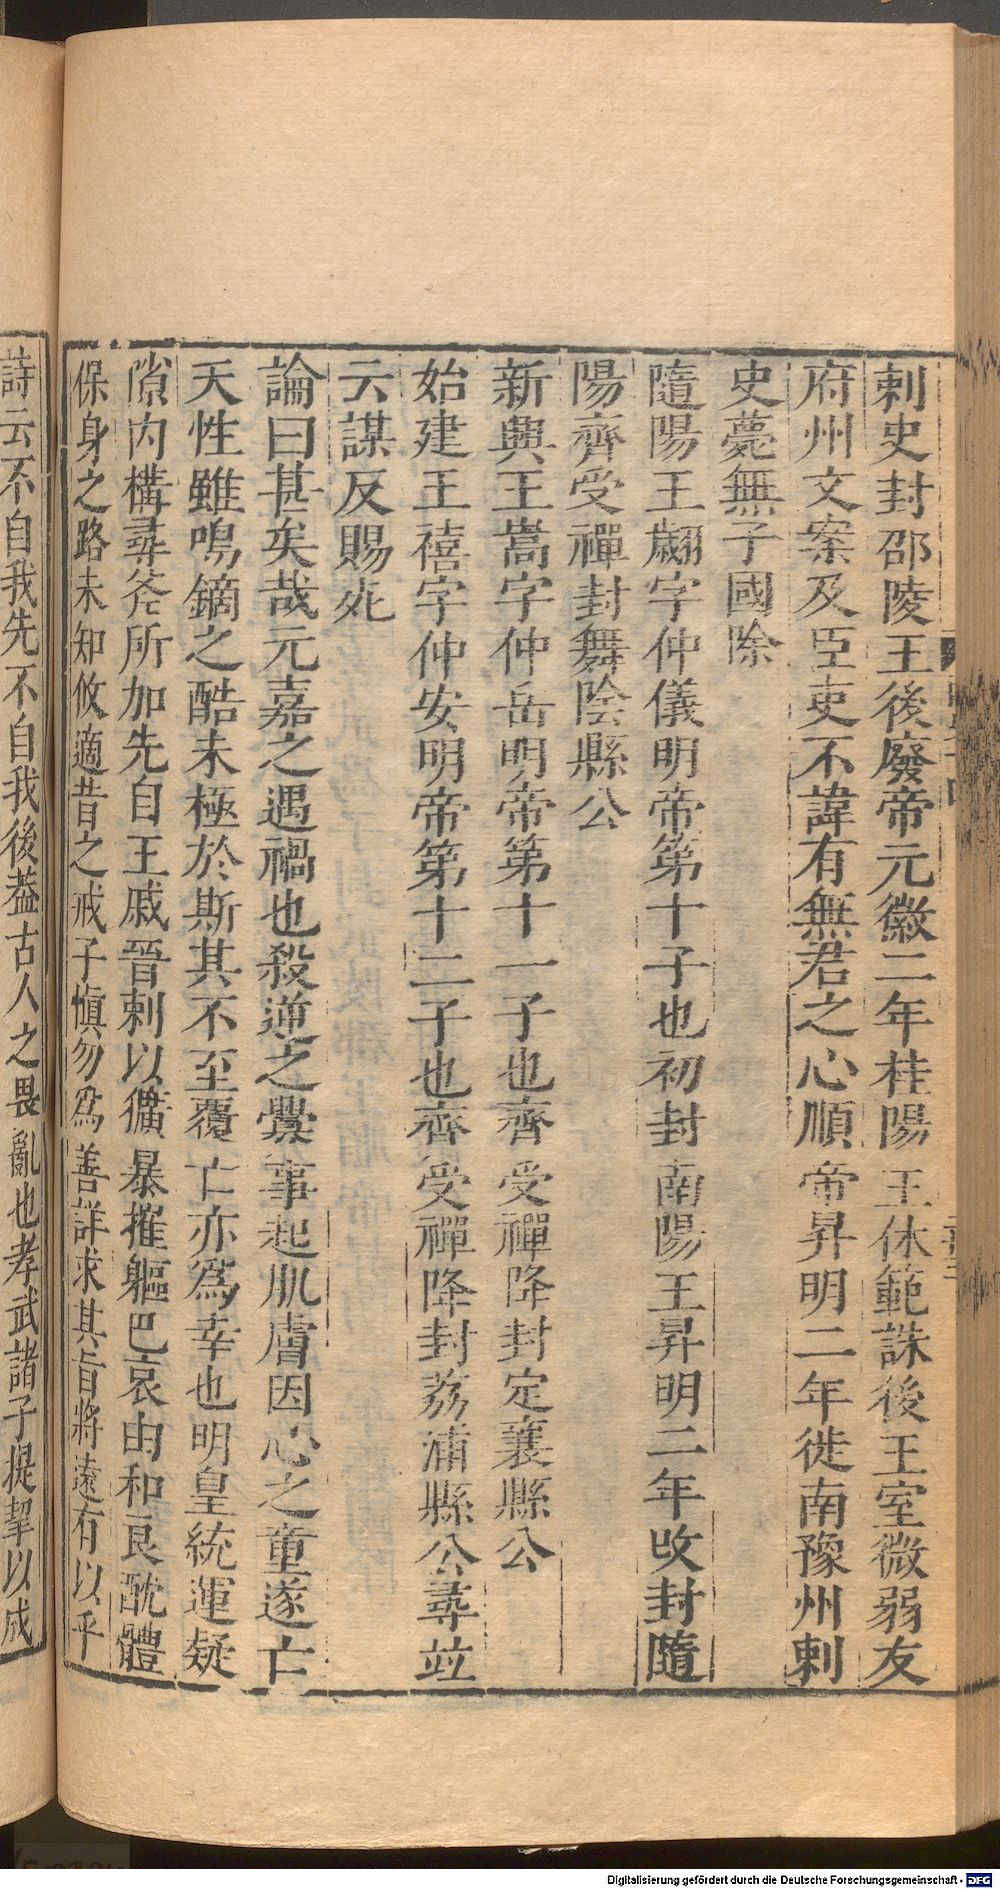 刺史封邵陵王後廢帝元徽二年桂陽王休範誅後王室微弱友
府州文案及臣吏不諱有無君之心順帝昇明二年徙南豫州刺
史薨無子國除
隨陽王翽字仲儀明帝第十子也初封南陽王昇明二年改封隨
陽齊受禪封舞陰縣公
新興王嵩字仲岳明帝第十一子也齊受禪降封定襄縣公
始建王禧字仲安明帝第十二子也齊受禪降封荔浦縣公尋並
云謀反賜死
論曰甚矣哉元嘉之遇禍也殺逆之釁事起肌膚因心之童遂亡
天性雖鳴鏑之酷未極於斯其不至覆亡亦為幸也明皇統運疑
隙內構尋斧所加先自王戚晉剌以獷暴摧軀巴哀由和良酖體
保身之路未知攸適昔之戒子慎勿為善詳求其旨將遠有以乎
詩云不自我先不自我後蓋古人之畏亂也孝武諸子提挈以成
Digitalisierung gefördert durch die Deutsche Forschungsgemeinschaft - DFG